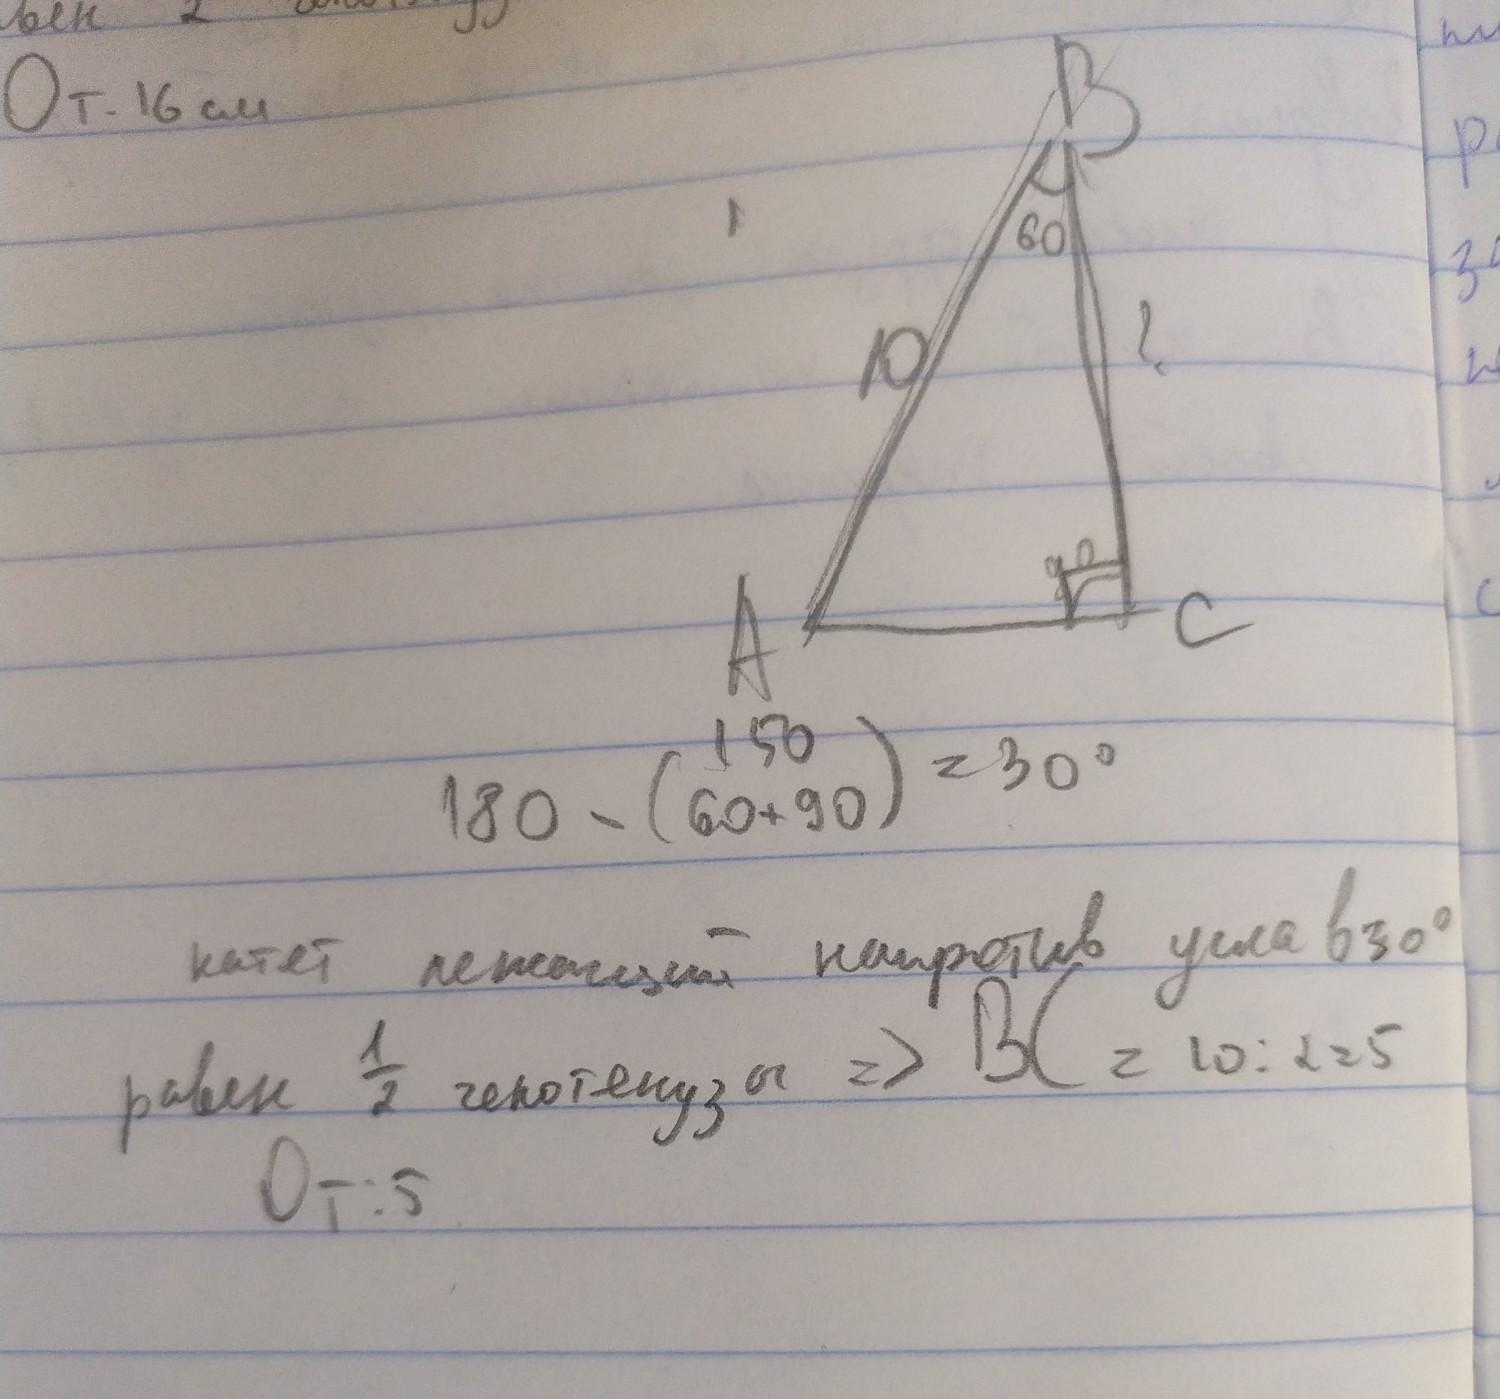 вен 2
От. 16 см
B
60
10
?
90
A
C
150
180 - (60+90) = 30°
катет лежащий напротив угла в 30°
равен 1/2 гепотенузы => BC = 10:2=5
От:5